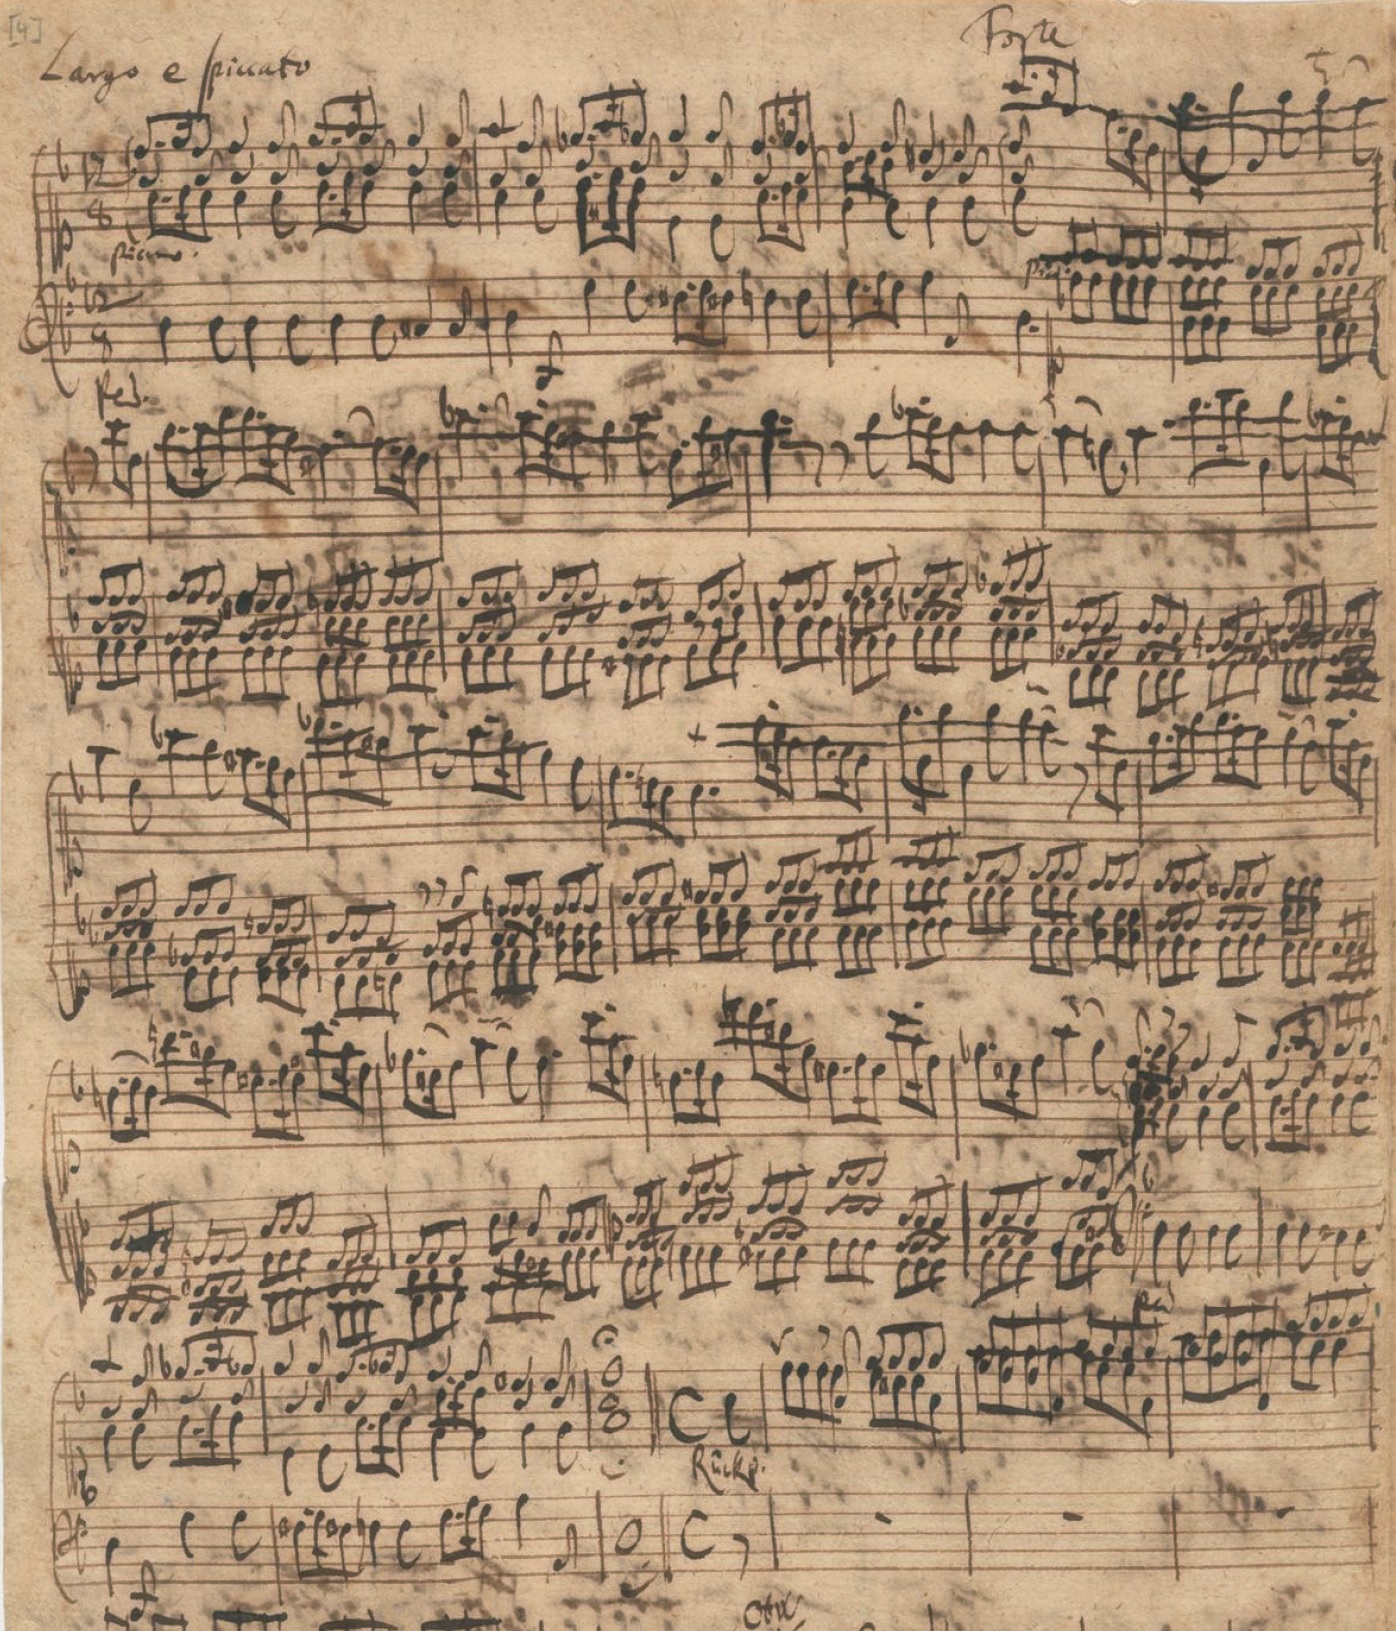 [4]
Largo e spiccato
Forte
piano.
Ped.
Ped
Rückp.